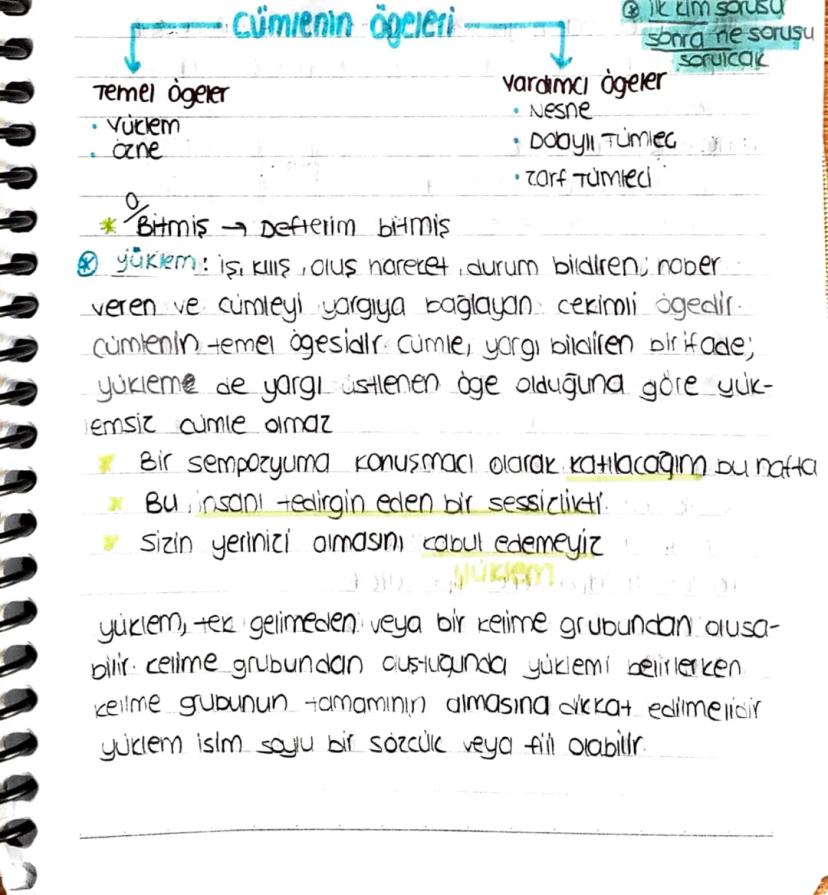 Cümlenin ögeleri
ilk kim sorusu
sonra ne sorusu
sorulcak
Temel ögeler
Yüklem
Özne
Yardımcı ögeler
Nesne
Dolaylı Tümleç
Zarf Tümleci
O
Bitmiş → Defterim bitmiş
yüklem: iş, kılış, oluş hareket, durum bildiren; haber
veren ve cümleyi yargıya bağlayan çekimli ögedir.
cümlenin temel ögesidir. cümle, yargı bildiren bir ifade;
yükleme de yargı üstlenen öge olduğuna göre yük-
lemsiz cümle olmaz
Bir sempozyuma konuşmacı olarak katılacağım bu hafta
Bu, insanı tedirgin eden bir sessizlikti.
Sizin yerinizi almasını kabul edemeyiz
yüklem
yüklem, tek gelimeden veya bir kelime grubundan oluşa-
bilir. kelime grubundan ouştuğunda yüklemi belirlerken
kelime gubunun tamamının almasına dikkat edilmelidir
yüklem isim soylu bir sözcük veya fiil olabilir.